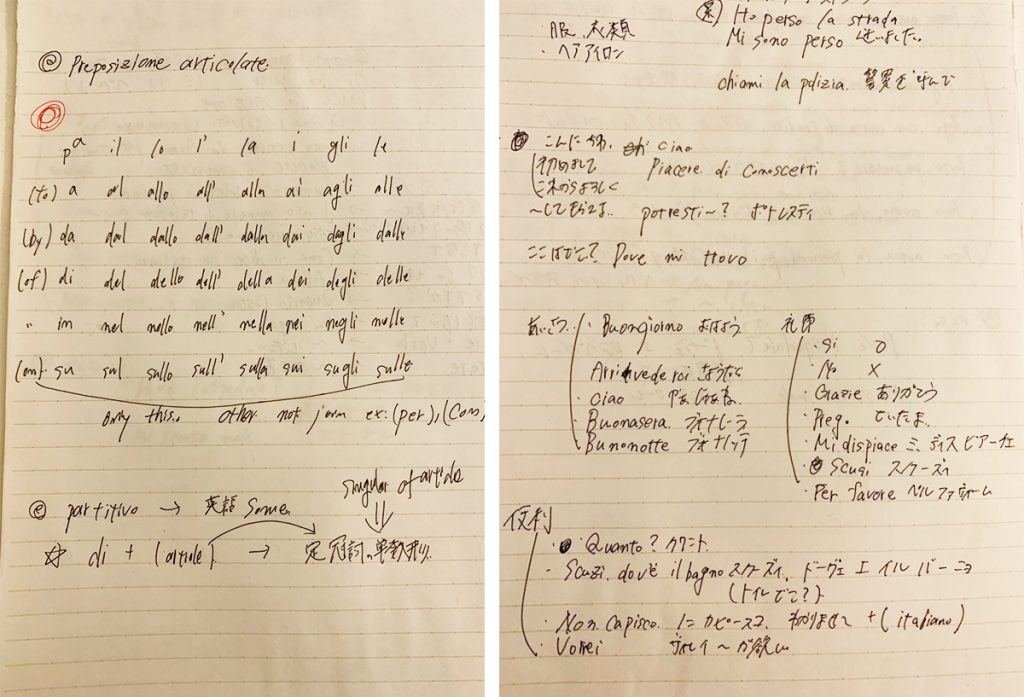 Preposizione articolate
il lo l' la i gli le
(to) a al allo all' alla ai agli alle
(by) da dal dallo dall' dalla dai dagli dalle
(of) di del dello dell' della dei degli delle
" in nel nello nell' nella nei negli nelle
(on) su sul sullo sull' sulla sui sugli sulle
only this.. other not form ex: (per), (Com)
singular of article
partitivo → 英語 Some
☆ di + (article) → 定冠詞
Ho perso la strada
服、衣類
Mi sono perso 迷いました。
・ヘアアイロン
chiami la polizia. 警察を呼んで
こんにちわ, ciao
初めまして Piacere di Conoscerti
これからよろしく
〜してもらえる.. potresti〜? ポトレスティ
ここはどこ? Dove mi trovo
あいさつ ・Buongiorno おはよう
Arrivederci さようなら
・Ciao やぁ じゃぁね
・Buonasera ブオナセーラ
・Buononotte ブオナノッテ
礼節
・Si O
・No X
・Grazie ありがとう
・Preg.
・Mi dispiace ミ ディスピアーチェ
・Scusi スクーズィ
・Per favore ペルファヴォーレ
便利
・Quanto? クワント
・Scuzi, dov'è il bagno スクーズィ, ドーヴェ エ イル バーニョ
(トイレどこ?)
・Non capisco. ノン カピースコ わかりません +(italiano)
・Vorrei ヴォレイ 〜が欲しい